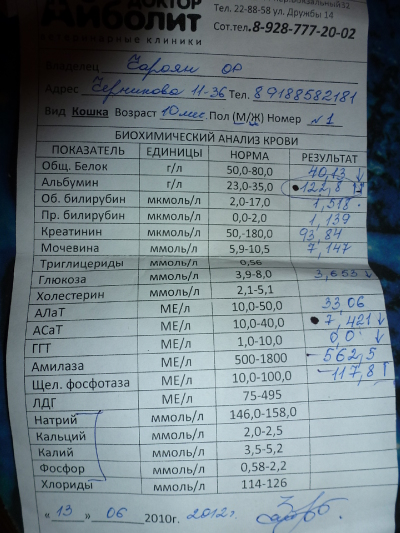 ДОКТОР
АЙБОЛИТ
ветеринарные клиники
Тел. 22-88-58 ул. Дружбы 14
Сот.тел.8-928-777-20-02
Владелец
Адрес Черникова 11-36 Тел. 89188582181
Вид Кошка Возраст 10 мес. Пол (М/Ж) Номер №1
БИОХИМИЧЕСКИЙ АНАЛИЗ КРОВИ
ПОКАЗАТЕЛЬ ЕДИНИЦЫ НОРМА РЕЗУЛЬТАТ
Общ. Белок г/л 50,0-80,0 40,13 ↓
Альбумин г/л 23,0-35,0 122,8
Об. билирубин мкмоль/л 2,0-17,0 1,518
Пр. билирубин мкмоль/л 0,0-2,0 1,139
Креатинин мкмоль/л 50,-180,0 93,84
Мочевина ммоль/л 5,9-10,5 7,147
Триглицериды ммоль/л 0,56
Глюкоза ммоль/л 3,9-8,0 3,653 ↓
Холестерин ммоль/л 2,1-5,1
АЛаТ МЕ/л 10,0-50,0 33,06
АСаТ МЕ/л 10,0-40,0 7,421 ↓
ГГТ МЕ/л 1,0-10,0 0,0 ↓
Амилаза МЕ/л 500-1800 562,5
Щел. фосфотаза МЕ/л 10,0-100,0 117,8 ↑
ЛДГ МЕ/л 75-495
Натрий ммоль/л 146,0-158,0
Кальций ммоль/л 2,0-2,5
Калий ммоль/л 3,5-5,2
Фосфор ммоль/л 0,58-2,2
Хлориды ммоль/л 114-126
« 13 » 06 2010г. 2012г.